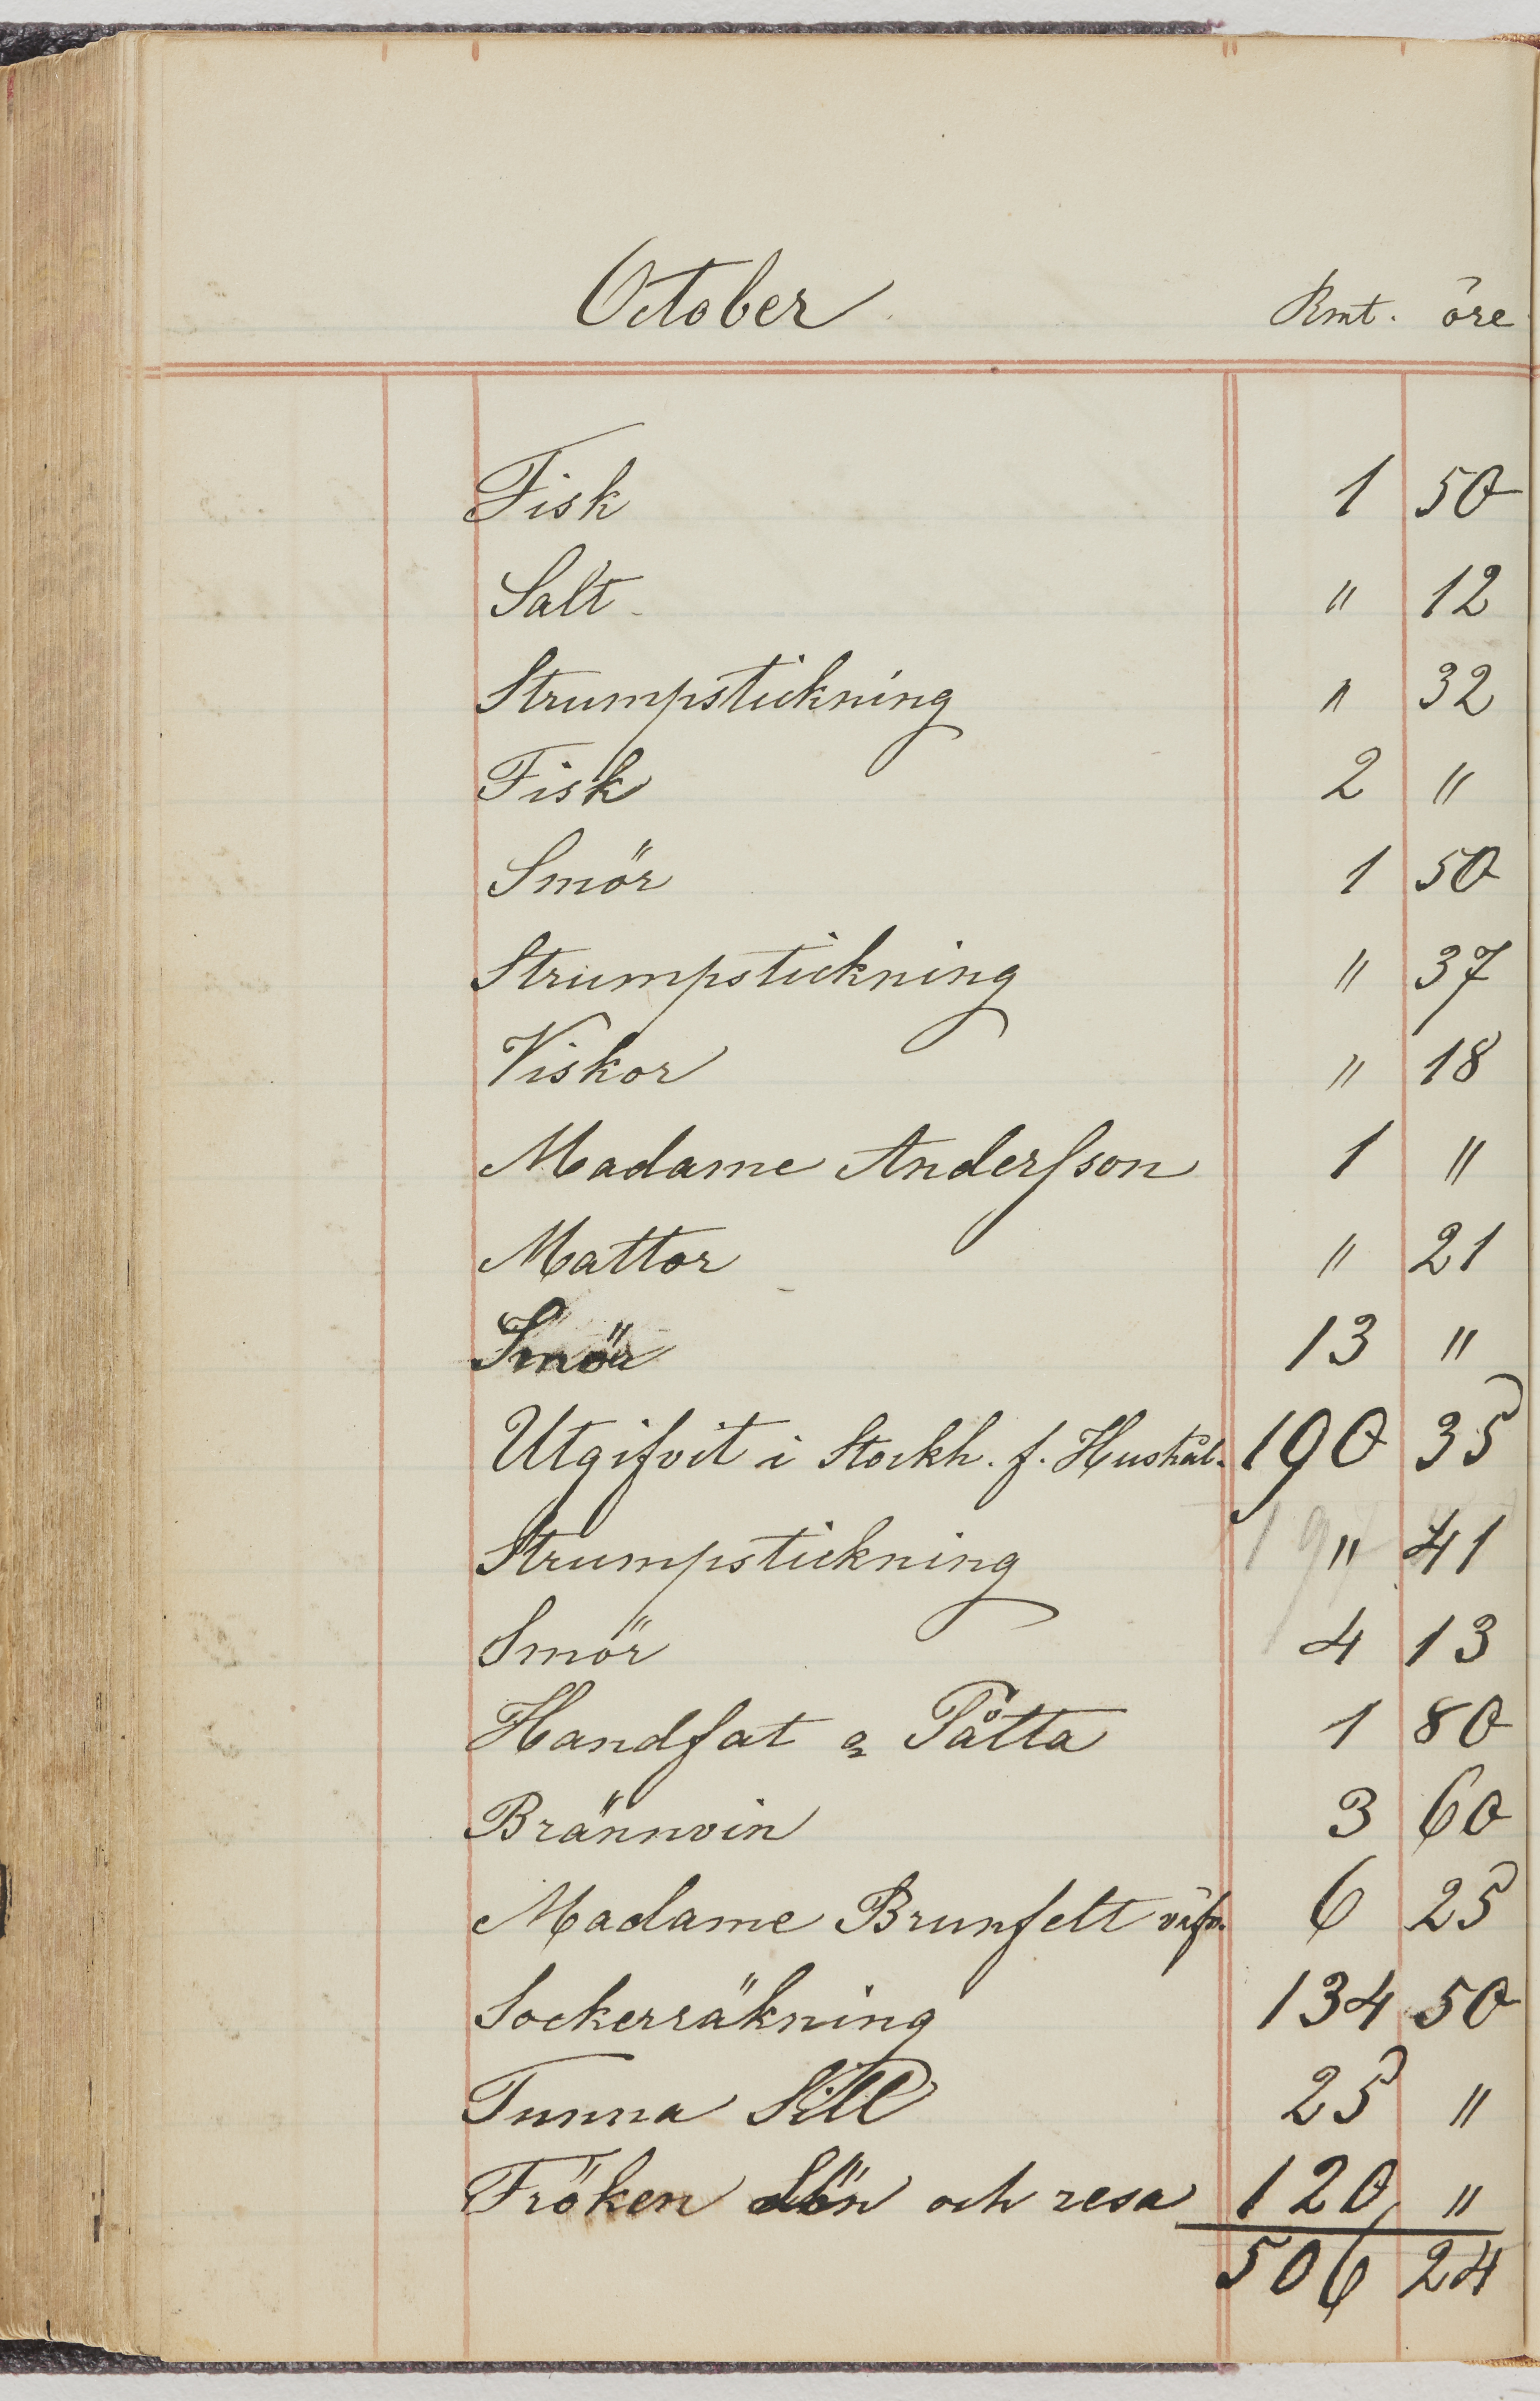 October Rmt. öre
Fisk 1 50
Salt " 12
Strumpstickning " 32
Fisk 2 "
Smör 1 50
Strumpstickning " 37
Viskor " 18
Madame Andersson 1 "
Mattor " 21
Smör 13 "
Utgifvit i Stockh. f. Hushål. 190 35
Strumpstickning " 41
Smör 4 13
Handfat & Påtta 1 80
Brännvin 3 60
Madame Brunfelt 6 25
Sockerräkning 134 50
Tunna Sill 25 "
Fröken Lön och resa 120 "
506 24